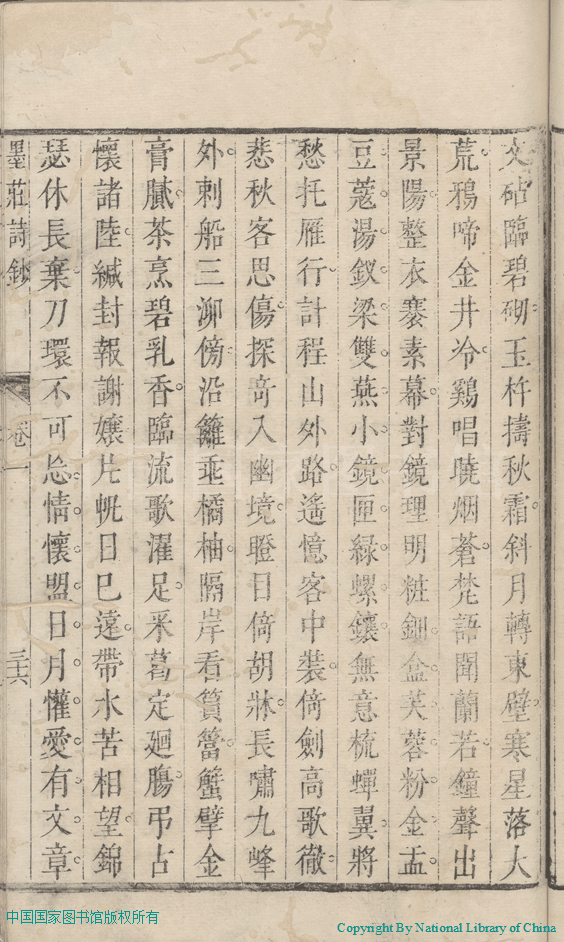 文砧臨碧砌玉杵擣秋霜斜月轉東壁寒星落大
荒鴉啼金井冷鷄唱曉烟蒼梵語聞蘭若鐘聲出
景陽整衣褰素幕對鏡理明粧鈿盒芙蓉粉金盂
豆蔻湯釵梁雙燕小鏡匣緑螺鑲無意梳蟬翼將
愁托雁行計程山外路遙憶客中裝倚劍高歌徹
悲秋客思傷探奇入幽境瞪目倚胡牀長嘯九峰
外刺船三泖傍沿籬垂橘柚隔岸看篔簹蟹擘金
膏膩茶烹碧乳香臨流歌濯足采葛定廻腸弔占
懷諸陸緘封報謝嬢片帆日巳遠帶水苦相望錦
瑟休長棄刀環不可忘情懷盟日月懽愛有文章
墨莊詩鈔 卷一 三十六
中国国家图书馆版权所有
Copyright By National Library of China